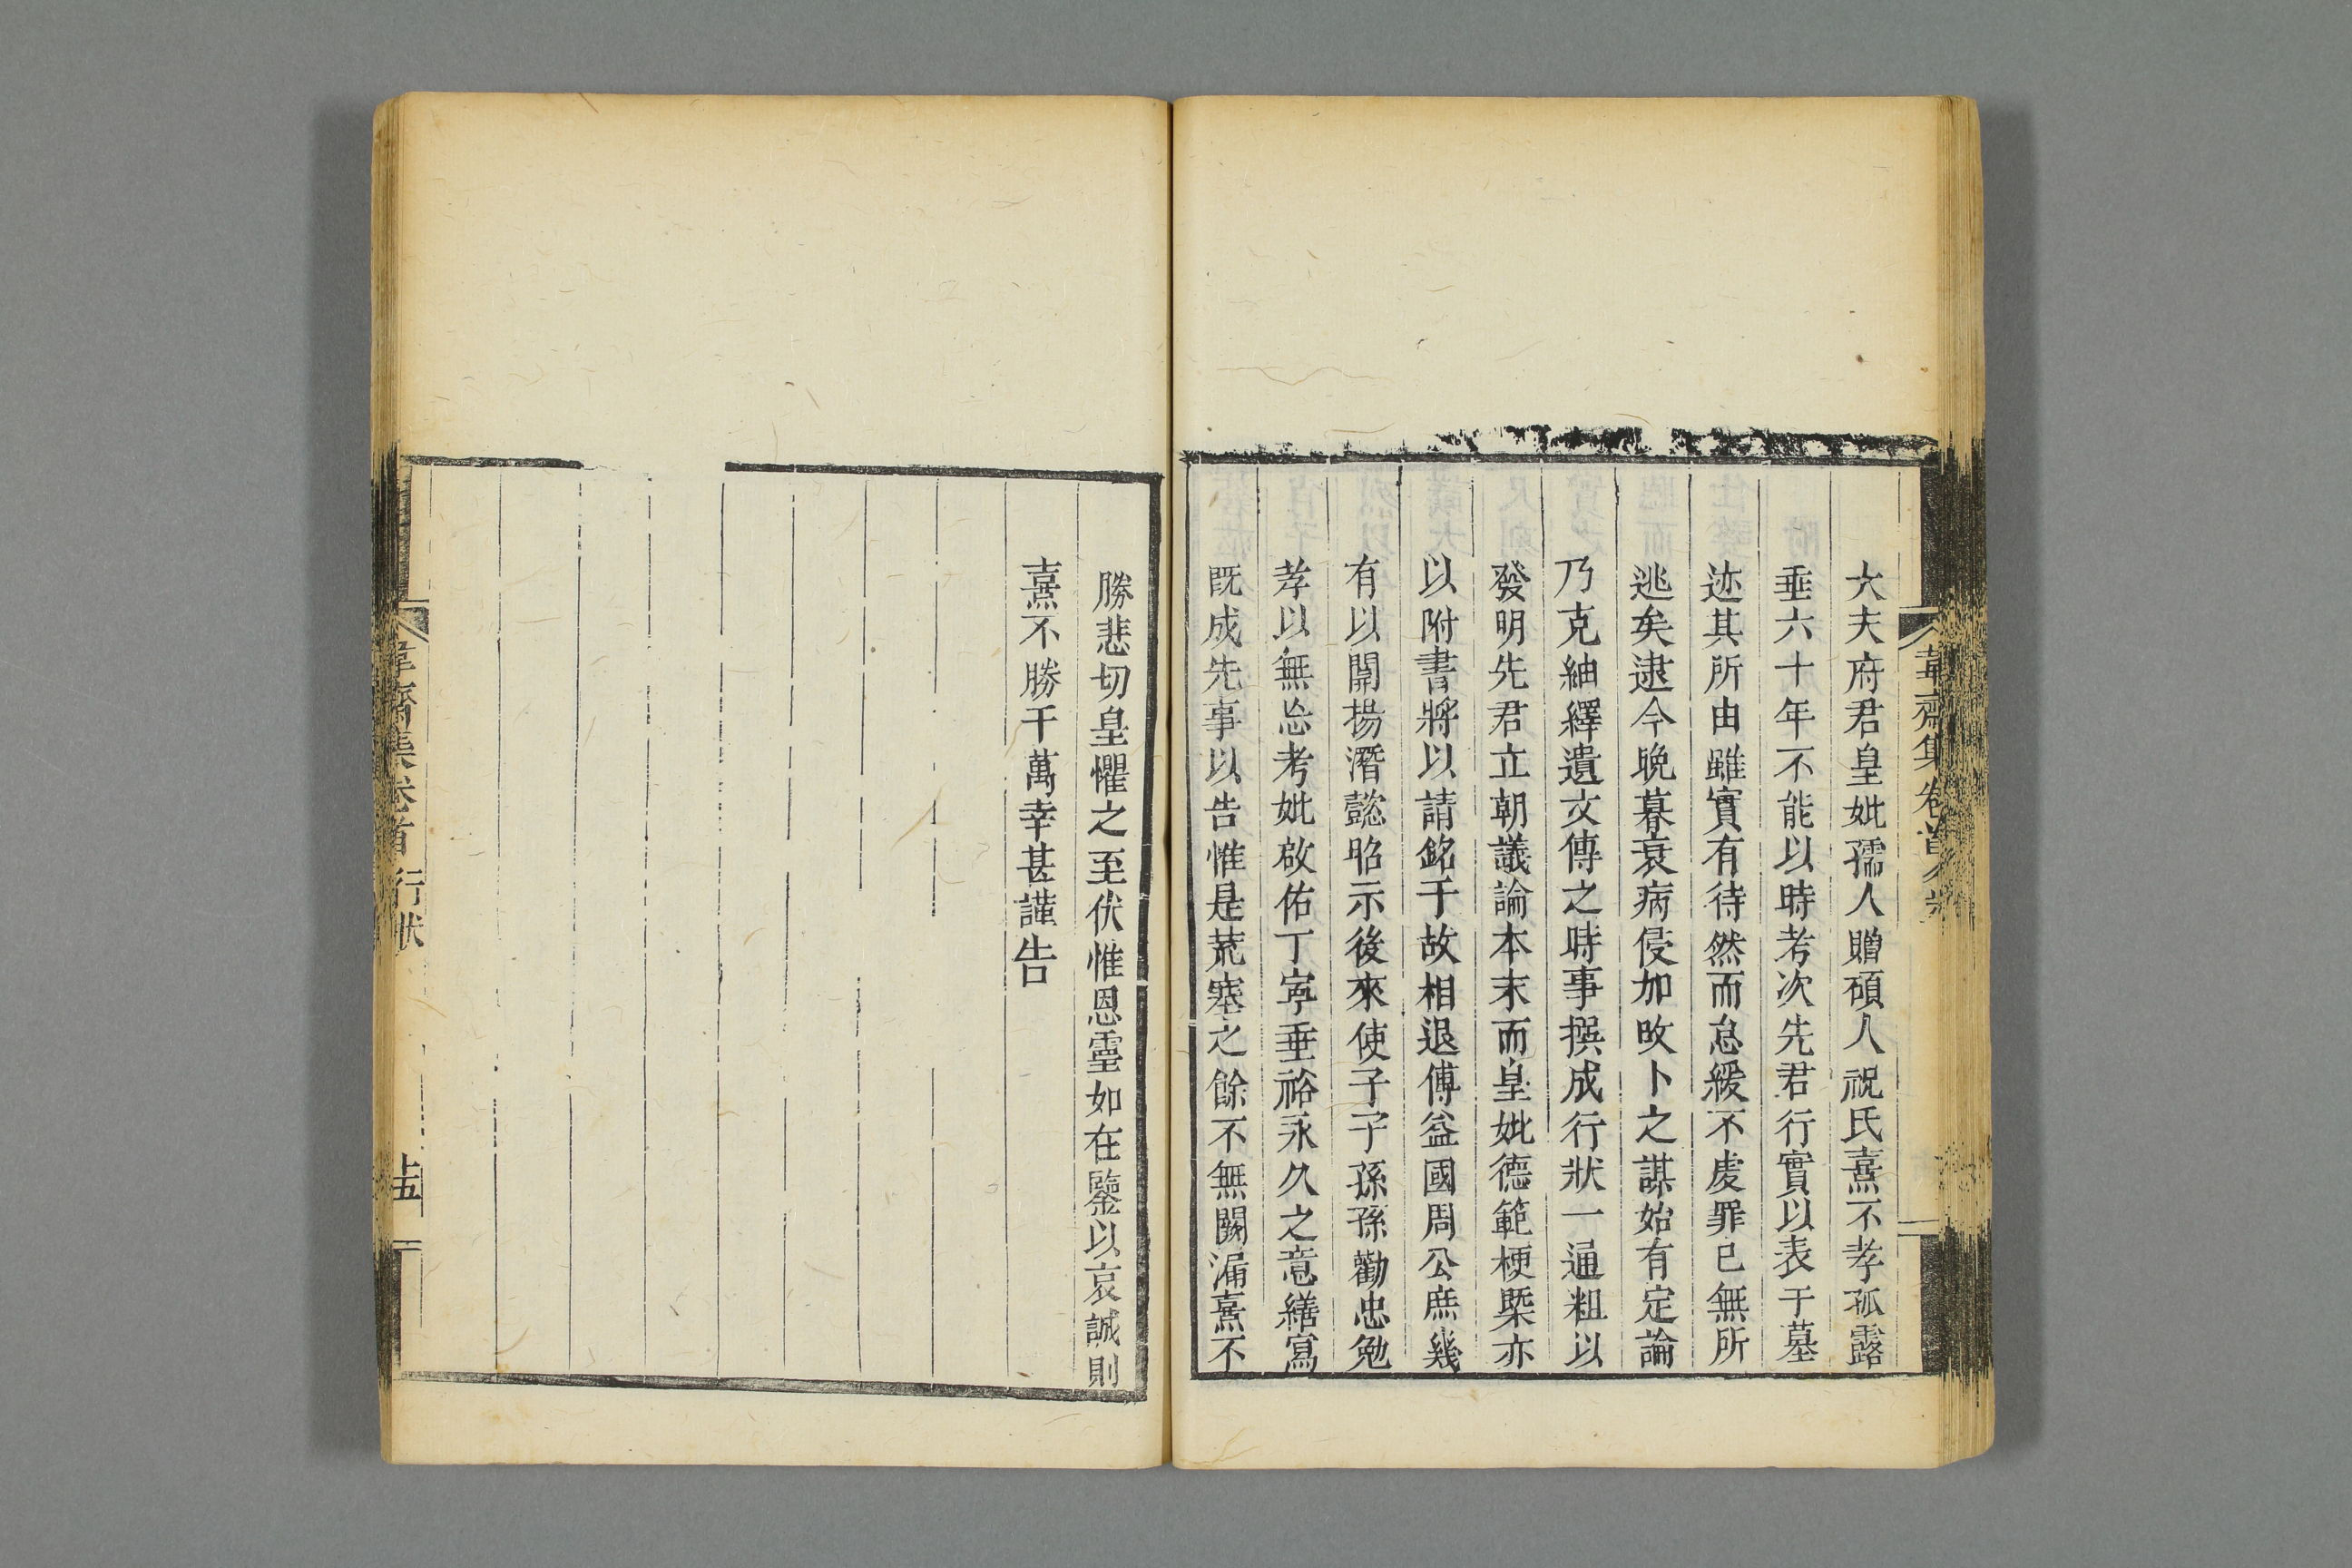 大夫府君皇妣孺人贈碩人祝氏熹不孝孤露
垂六十年不能以時考次先君行實以表于墓
迹其所由雖實有待然而怠緩不虔罪已無所
逃矣逮今晚暮衰病侵加攺卜之謀始有定論
乃克紬繹遺文傳之時事撰成行狀一通粗以
發明先君立朝議論本末而皇妣德範梗槩亦
以附書將以請銘于故相退傅益國周公庶幾
有以開揚潛懿昭示後來使子子孫孫勸忠勉
孝以無忘考妣啟佑丁寧垂裕永久之意繕寫
既成先事以告惟是荒塞之餘不無闕漏熹不
勝悲切皇懼之至伏惟恩靈如在鑒以哀誠則
熹不勝千萬幸甚謹告
韋齋集卷首
行狀
韋齋集卷首